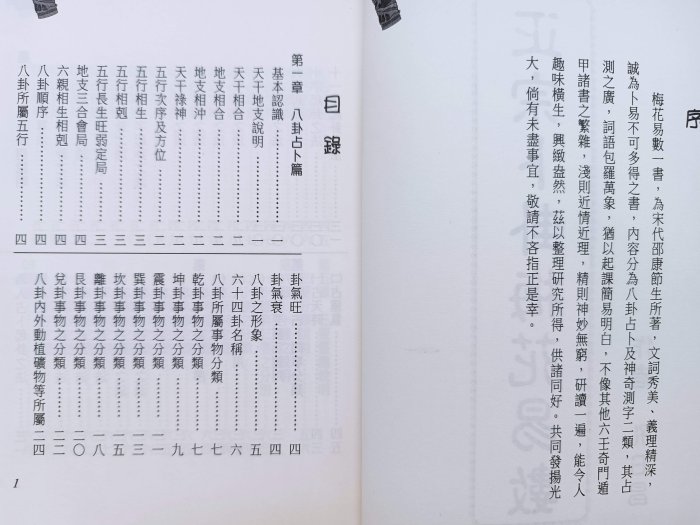 序
梅花易數一書，為宋代邵康節生所著，文詞秀美、義理精深，
誠為卜易不可多得之書，內容分為八卦占卜及神奇測字二類，其占
測之廣，詞語包羅萬象，猶以起課簡易明白，不像其他六壬奇門遁
甲諸書之繁雜，淺則近情近理，精則神妙無窮，研讀一遍，能令人
趣味橫生，興緻盎然，茲以整理研究所得，供諸同好。共同發揚光
大，倘有未盡事宜，敬請不吝指正是幸。
目錄
第一章　八卦占卜篇
基本認識………………一
天干地支說明…………一
天干相合………………二
地支相合………………二
地支相沖………………二
天干祿神………………二
五行次序及方位………二
五行相生………………三
五行相剋………………三
五行長生旺弱定局……三
地支三合會局…………四
六親相生相剋…………四
八卦順序………………四
八卦所屬五行…………四
卦氣旺…………………四
卦氣衰…………………四
八卦之形象……………五
六十四卦名稱…………六
八卦所屬事物分類……七
乾卦事物之分類………七
坤卦事物之分類………九
震卦事物之分類………一一
巽卦事物之分類………一三
坎卦事物之分類………一五
離卦事物之分類………一八
艮卦事物之分類………二〇
兌卦事物之分類………二二
八卦內外動植礦物等所屬　二四
1